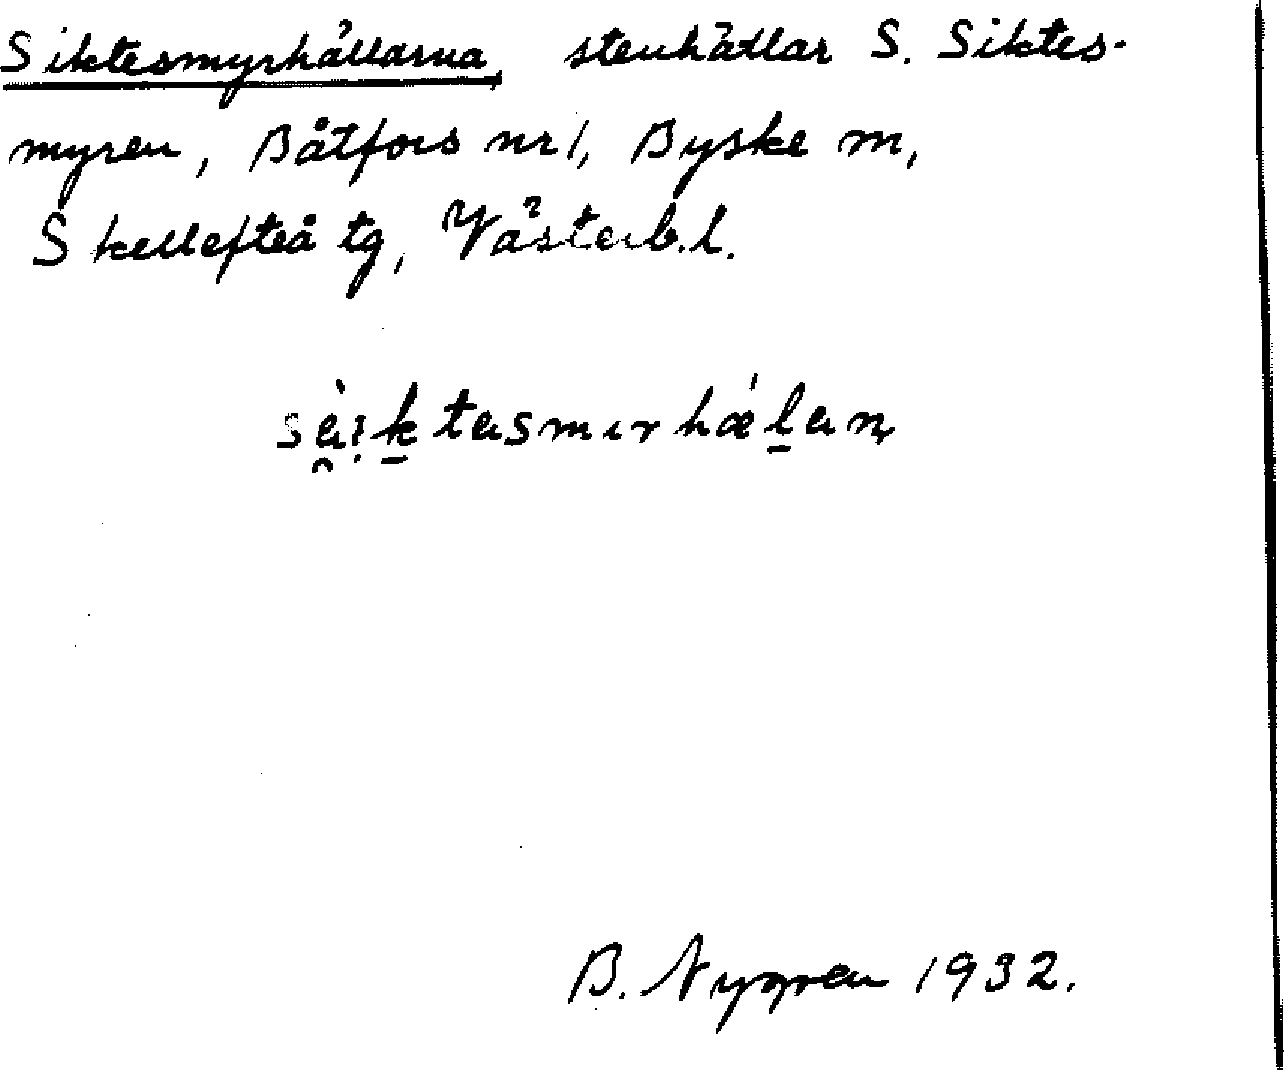 Siktesmyrhällarna, stenhällar S. Siktes-
myren, Båtfors nr 1, Byske sn,
Skellefteå tg, Västerb.l.
sài̯ktasmɪrhǽlan
B. Nygren 1932.